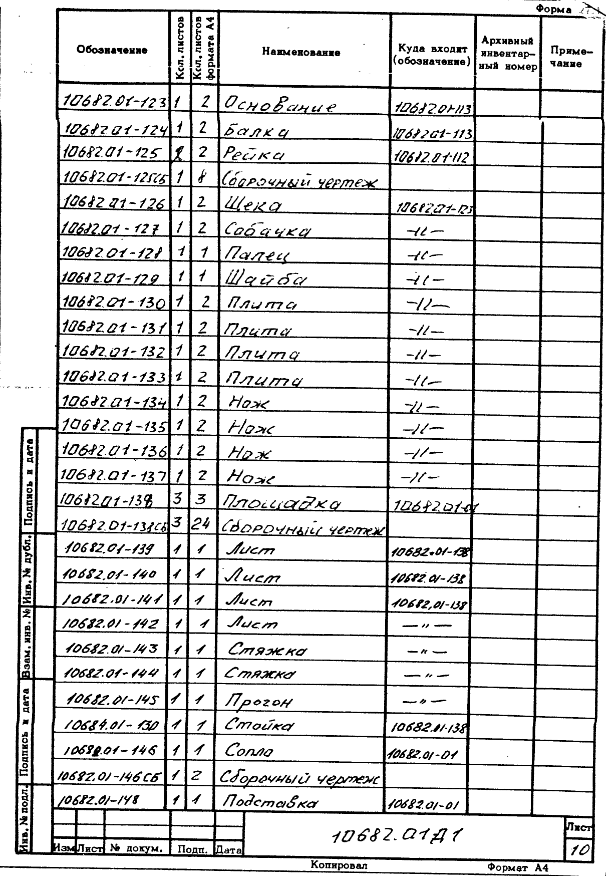 Форма
Обозначение Кол. листов Кол. листов формата А4 Наименование Куда входит (обозначение) Архивный инвентарный номер Приме-чание
10682.01-123 1 2 Основание 10682.01-113
10682.01-124 1 2 Балка 10682.01-113
10682.01-125 2 2 Рейка 10682.01-112
10682.01-125СБ 1 8 Сборочный чертеж
10682.01-126 1 2 Щека 10682.01-125
10682.01-127 1 2 Собачка -//-
10682.01-128 1 1 Палец -//-
10682.01-129 1 1 Шайба -//-
10682.01-130 1 2 Плита -//-
10682.01-131 1 2 Плита -//-
10682.01-132 1 2 Плита -//-
10682.01-133 1 2 Плита -//-
10682.01-134 1 2 Нож -//-
10682.01-135 1 2 Нож -//-
10682.01-136 1 2 Нож -//-
10682.01-137 1 2 Нож -//-
10682.01-138 3 3 Площадка 10682.01-01
10682.01-138СБ 3 24 Сборочный чертеж
10682.01-139 1 1 Лист 10682.01-138
10682.01-140 1 1 Лист 10682.01-138
10682.01-141 1 1 Лист 10682.01-138
10682.01-142 1 1 Лист -"-
10682.01-143 1 1 Стяжка -"-
10682.01-144 1 1 Стяжка -"-
10682.01-145 1 1 Прогон -"-
10684.01-130 1 1 Стойка 10682.01-138
10682.01-146 1 1 Сопло 10682.01-01
10682.01-146СБ 1 2 Сборочный чертеж
10682.01-148 1 1 Подставка 10682.01-01
Подпись и дата
Инв. № дубл.
Взам. инв. №
Подпись и дата
Инв. № подл.
Изм Лист № докум. Подп. Дата
10682.01Д1
Лист
10
Копировал Формат А4